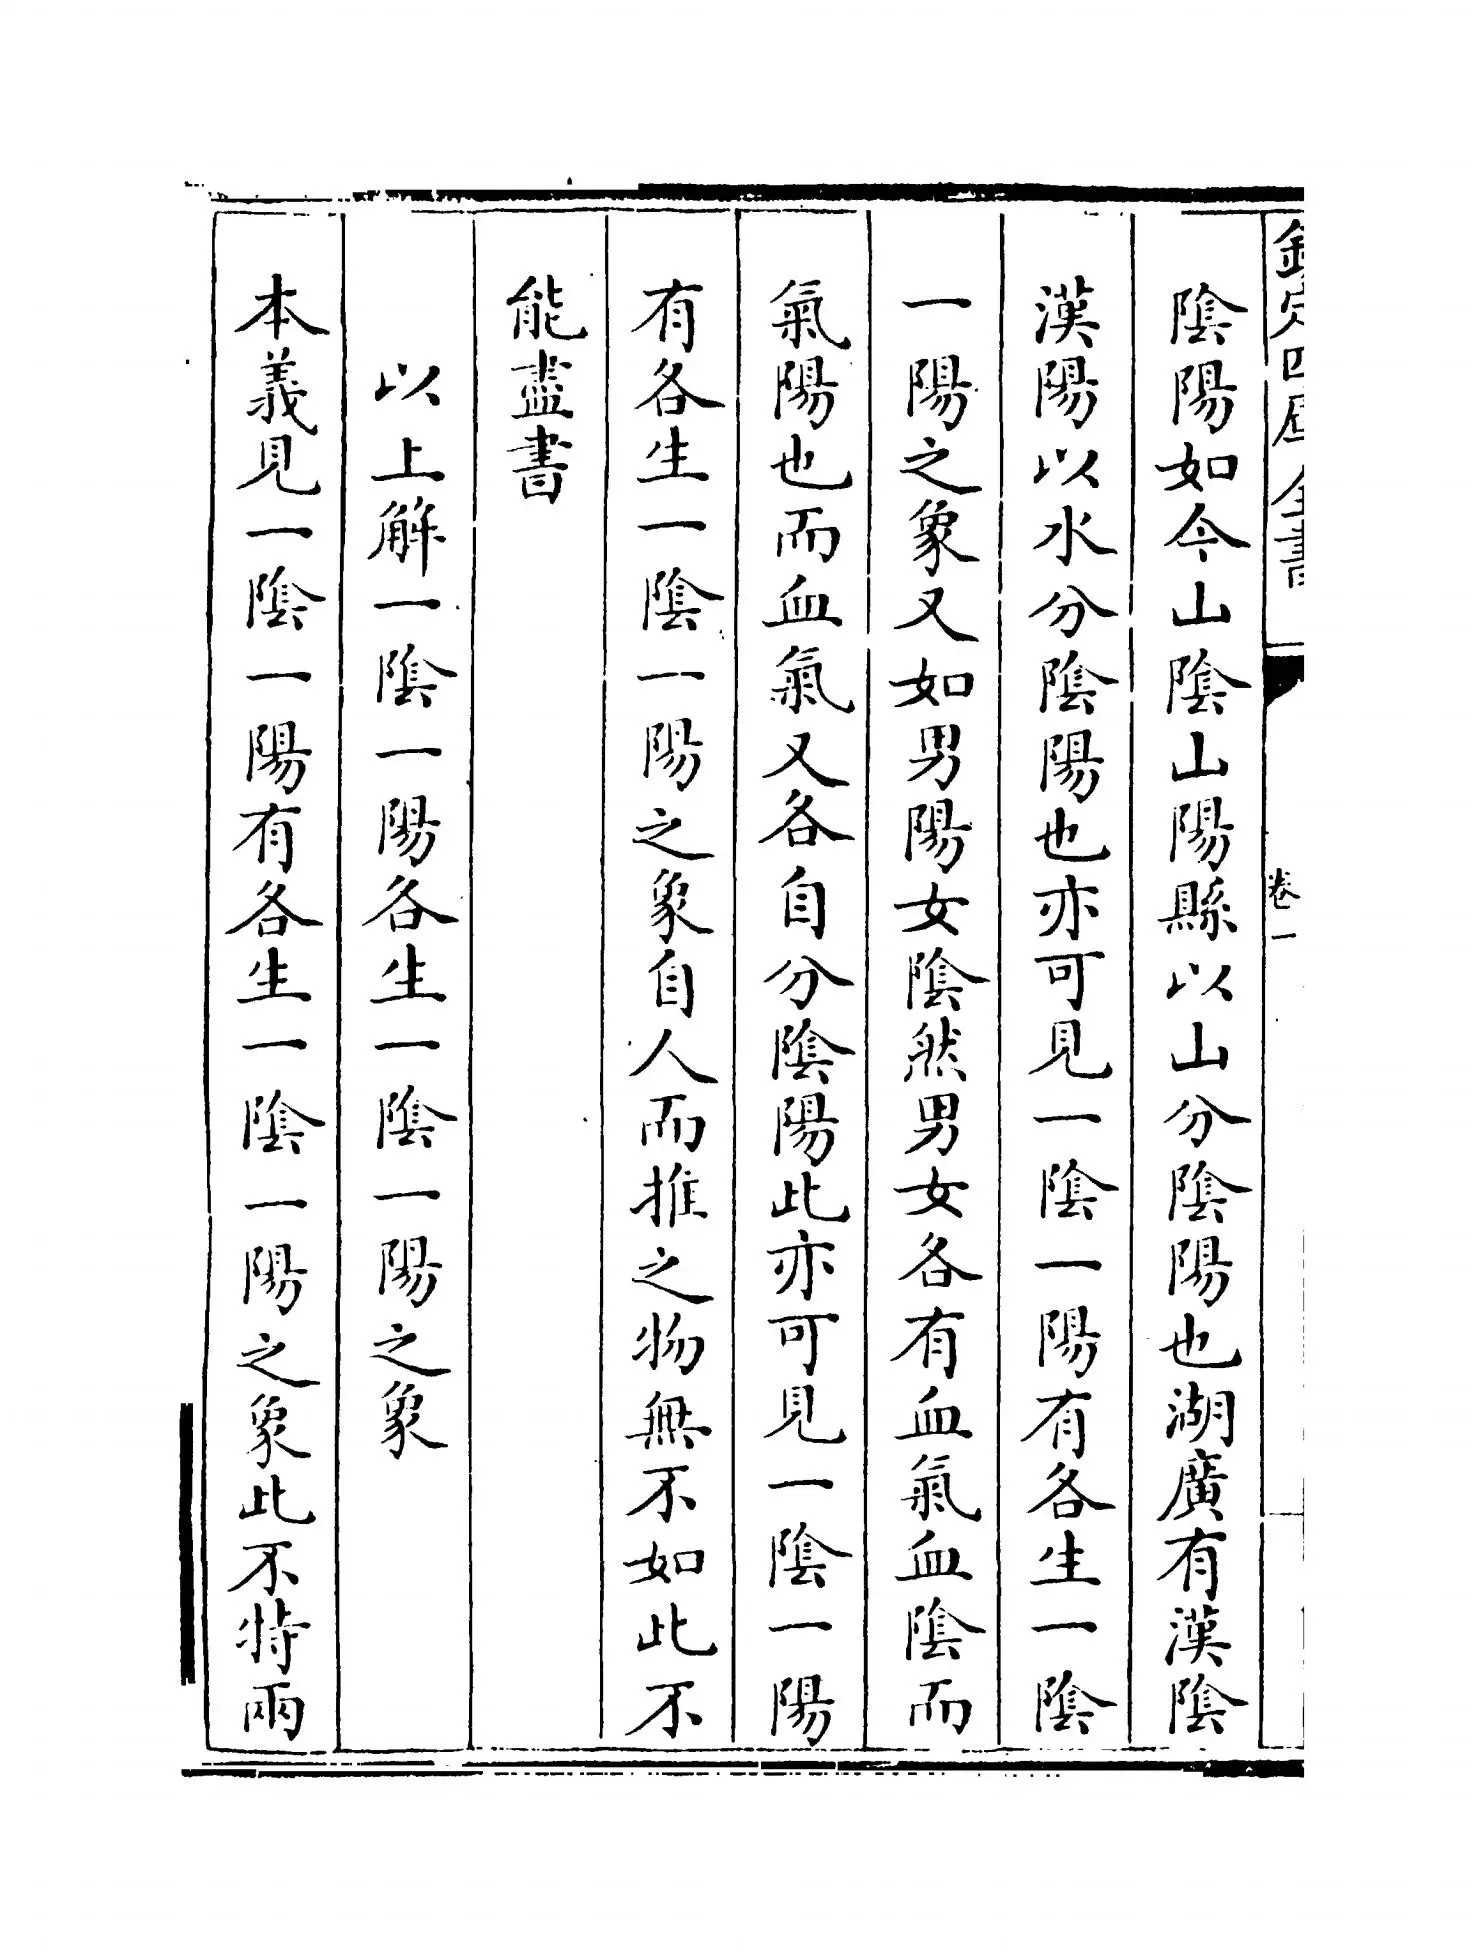 欽定四庫全書
卷一
陰陽如今山陰山陽縣以山分陰陽也湖廣有漢陰
漢陽以水分陰陽也亦可見一陰一陽有各生一陰
一陽之象又如男陽女陰然男女各有血氣血陰而
氣陽也而血氣又各自分陰陽此亦可見一陰一陽
有各生一陰一陽之象自人而推之物無不如此不
能盡書
以上解一陰一陽各生一陰一陽之象
本義見一陰一陽有各生一陰一陽之象此不特兩